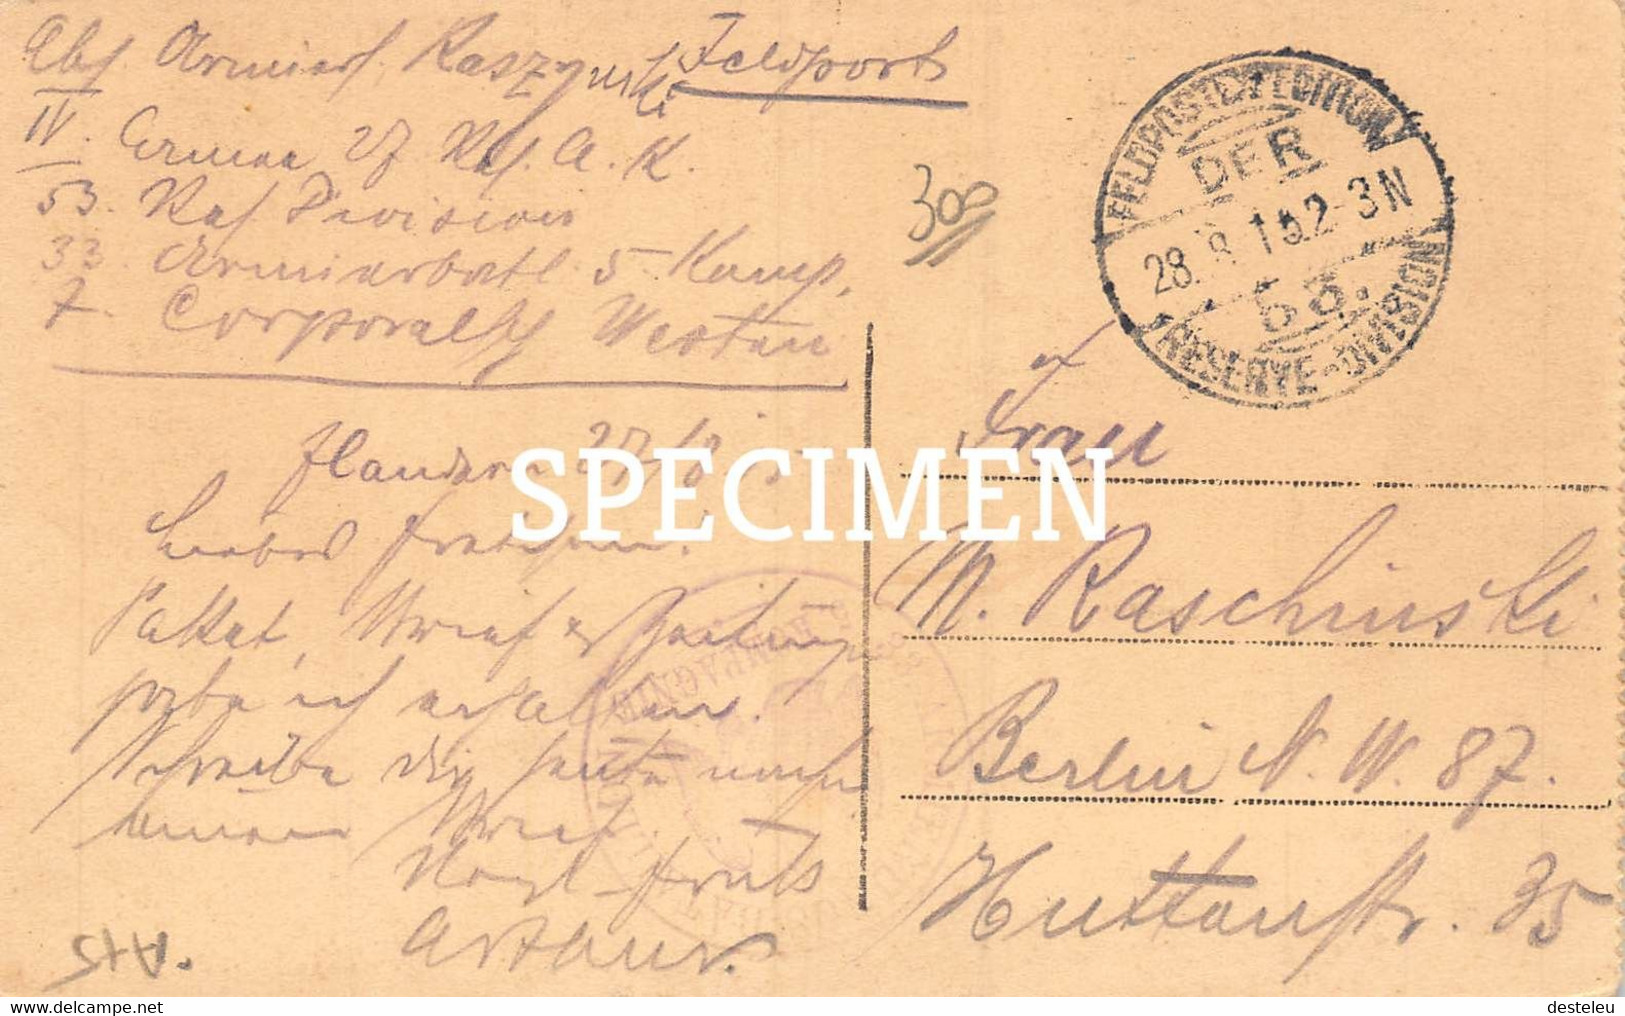 Abs. Armiers. Raszynski Feldpost
IV. Armee 27 Res. A. K.
53. Res. Division
33. Armierbatl. 5. Komp.
7. Corporalsch Westen
300
FELDPOSTEXPEDITION
DER
28.8.15.2-3N
53.
RESERVE-DIVISION
Flandern 27/8
Liebes Fretchen!
Paket, Brief & Zeitung
habe ich erhalten.
Schreibe Dir heute noch
einen Brief.
Herzl. Gruß
Arthur.
KOMPAGNIE
An
Frau
M. Raschinski
Berlin N. W. 87.
Huttenstr. 35
A+5
SPECIMEN
www.delcampe.net
desteleu